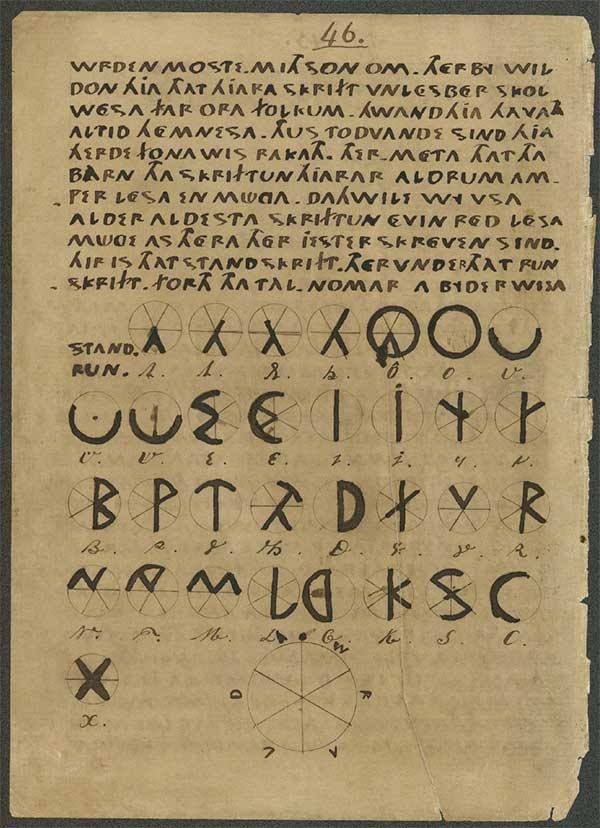 46.
WRDEN MOSTE. MITH SON OM. THER BY WIL
DON HIA THAT HIARA SKRIFT VNLESBER SKOL
WESA FAR ORA FOLKUM. HWAND HIA HAVATH
ALTID HEMNESA. THUS TODVANDE SIND HIA
HERDE FONA WIS RAKATH. THER META THAT THA
BARN THA SKRIFTUN HIARAR ALDRUM AM-
PER LESA EN MUGA. DAHWILE WY VSA
ALDER ALDESTA SKRIFTUN EVIN RED LESA
MUGE AS THERA THER IESTER SKREVEN SIND.
HIR IS THAT STANDSKRIFT. THERVNDER THAT RUN
SKRIFT. FORTH THA TAL. NOMAR A BYDER WISA
STAND.
RUN. O. O. V.
V. V. E. E. I. J.
B. P. D. R.
N. F. M. L. G. K. S. C.
X.